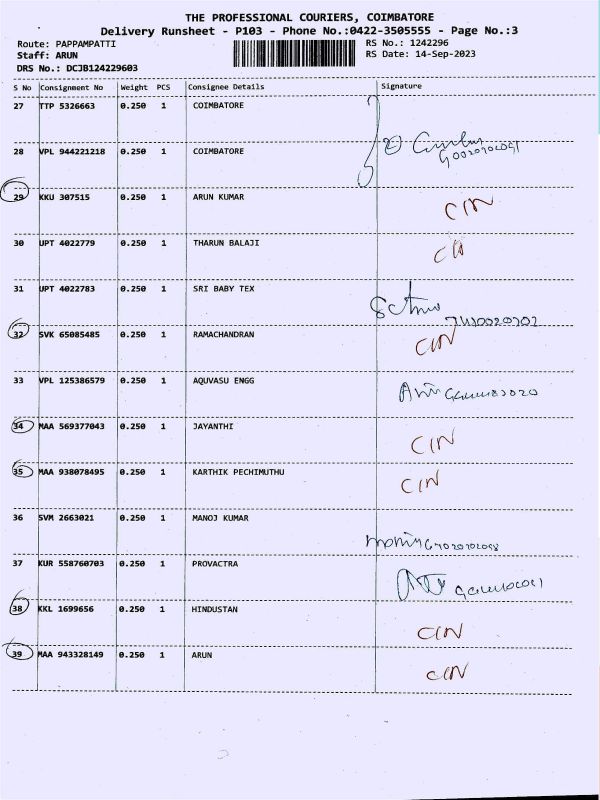 THE PROFESSIONAL COURIERS, COIMBATORE
Delivery Runsheet - P103 - Phone No.:0422-3505555 - Page No.:3
Route: PAPPAMPATTI RS No.: 1242296
Staff: ARUN RS Date: 14-Sep-2023
DRS No.: DCJB124229603
S No Consignment No Weight PCS Consignee Details Signature
27 TTP 5326663 0.250 1 COIMBATORE
28 VPL 944221218 0.250 1 COIMBATORE
29 KKU 307515 0.250 1 ARUN KUMAR CIN
30 UPT 4022779 0.250 1 THARUN BALAJI
31 UPT 4022783 0.250 1 SRI BABY TEX
32 SVK 65085485 0.250 1 RAMACHANDRAN CIN
33 VPL 125386579 0.250 1 AQUVASU ENGG
34 MAA 569377043 0.250 1 JAYANTHI CIN
35 MAA 938078495 0.250 1 KARTHIK PECHIMUTHU CIN
36 SVM 2663021 0.250 1 MANOJ KUMAR
37 KUR 558760703 0.250 1 PROVACTRA
38 KKL 1699656 0.250 1 HINDUSTAN CIN
39 MAA 943328149 0.250 1 ARUN CIN